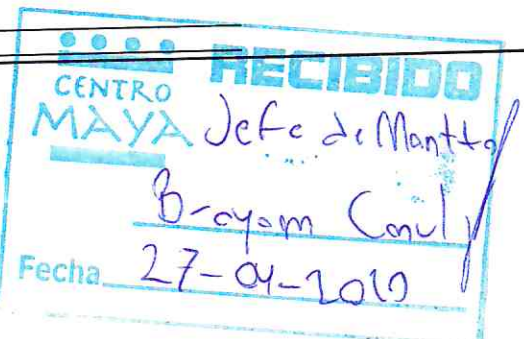 CENTRO MAYA RECIBIDO
Jefe de Mantto
Brayam
Fecha 27-04-